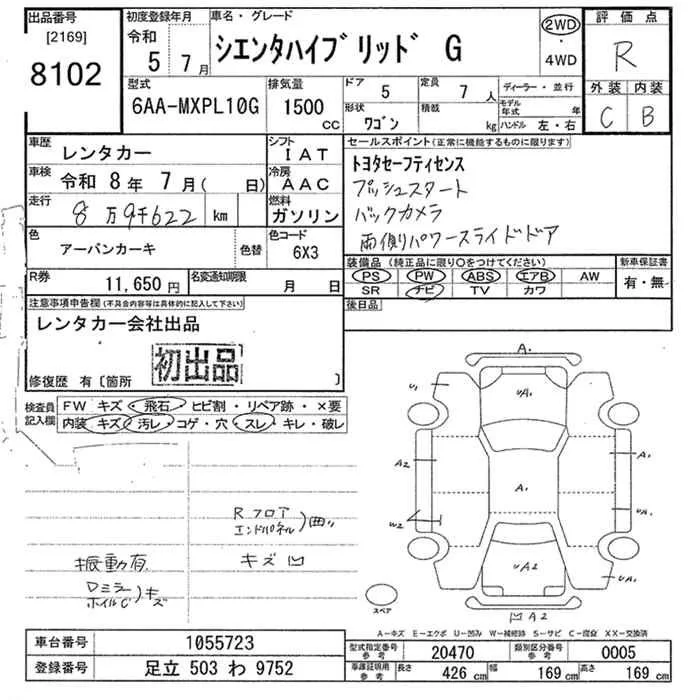 出品番号
[2169]
8102
初度登録年月
令和
5 7月
車名・グレード
シエンタハイブリッド G
2WD
・
4WD
評価点
R
外装 内装
C B
型式
6AA-MXPL10G
排気量
1500
CC
ドア
5
定員
7 人
形状
ワゴン
積載
kg
ディーラー・並行
モデル年式 年
ハンドル 左・右
車歴
レンタカー
シフト
IAT
車検 令和 8年 7月( 日)
冷房
AAC
走行
8万9千622 km
燃料
ガソリン
色
アーバンカーキ
色替
色コード
6X3
R券
11,650 円
名変通知期限
月 日
セールスポイント(正常に機能するものに限ります)
トヨタセーフティセンス
プッシュスタート
バックカメラ
両側パワースライドドア
装備品(純正品に限り○をつけてください)
PS PW ABS エアB AW
SR ナビ TV カワ
新車保証書
有・無
後日品
注意事項申告欄(不具合内容等は具体的に記入して下さい)
レンタカー会社出品
初出品
修復歴 有〔箇所 〕
検査員
記入欄
FW キズ・飛石・ヒビ割・リペア跡・×要
内装・キズ・汚レ・コゲ・穴・スレ・キレ・破レ
Rフロア
エンドパネル)曲り
キズ凹
振動有
Dミラー
ホイルC)キズ
A.
U1
UA.
A2
A.
A.
UA.
W2
UA2
UA.
凹A2
スペア
A-キズ E-エクボ U-凹み W-補修跡 S-サビ C-腐食 XX-交換済
車台番号
1055723
登録番号
足立 503 わ 9752
型式指定番号
参考
20470
類別区分番号
参考
0005
車庫証明用
参考
長さ
426 cm
幅
169 cm
高さ
169 cm